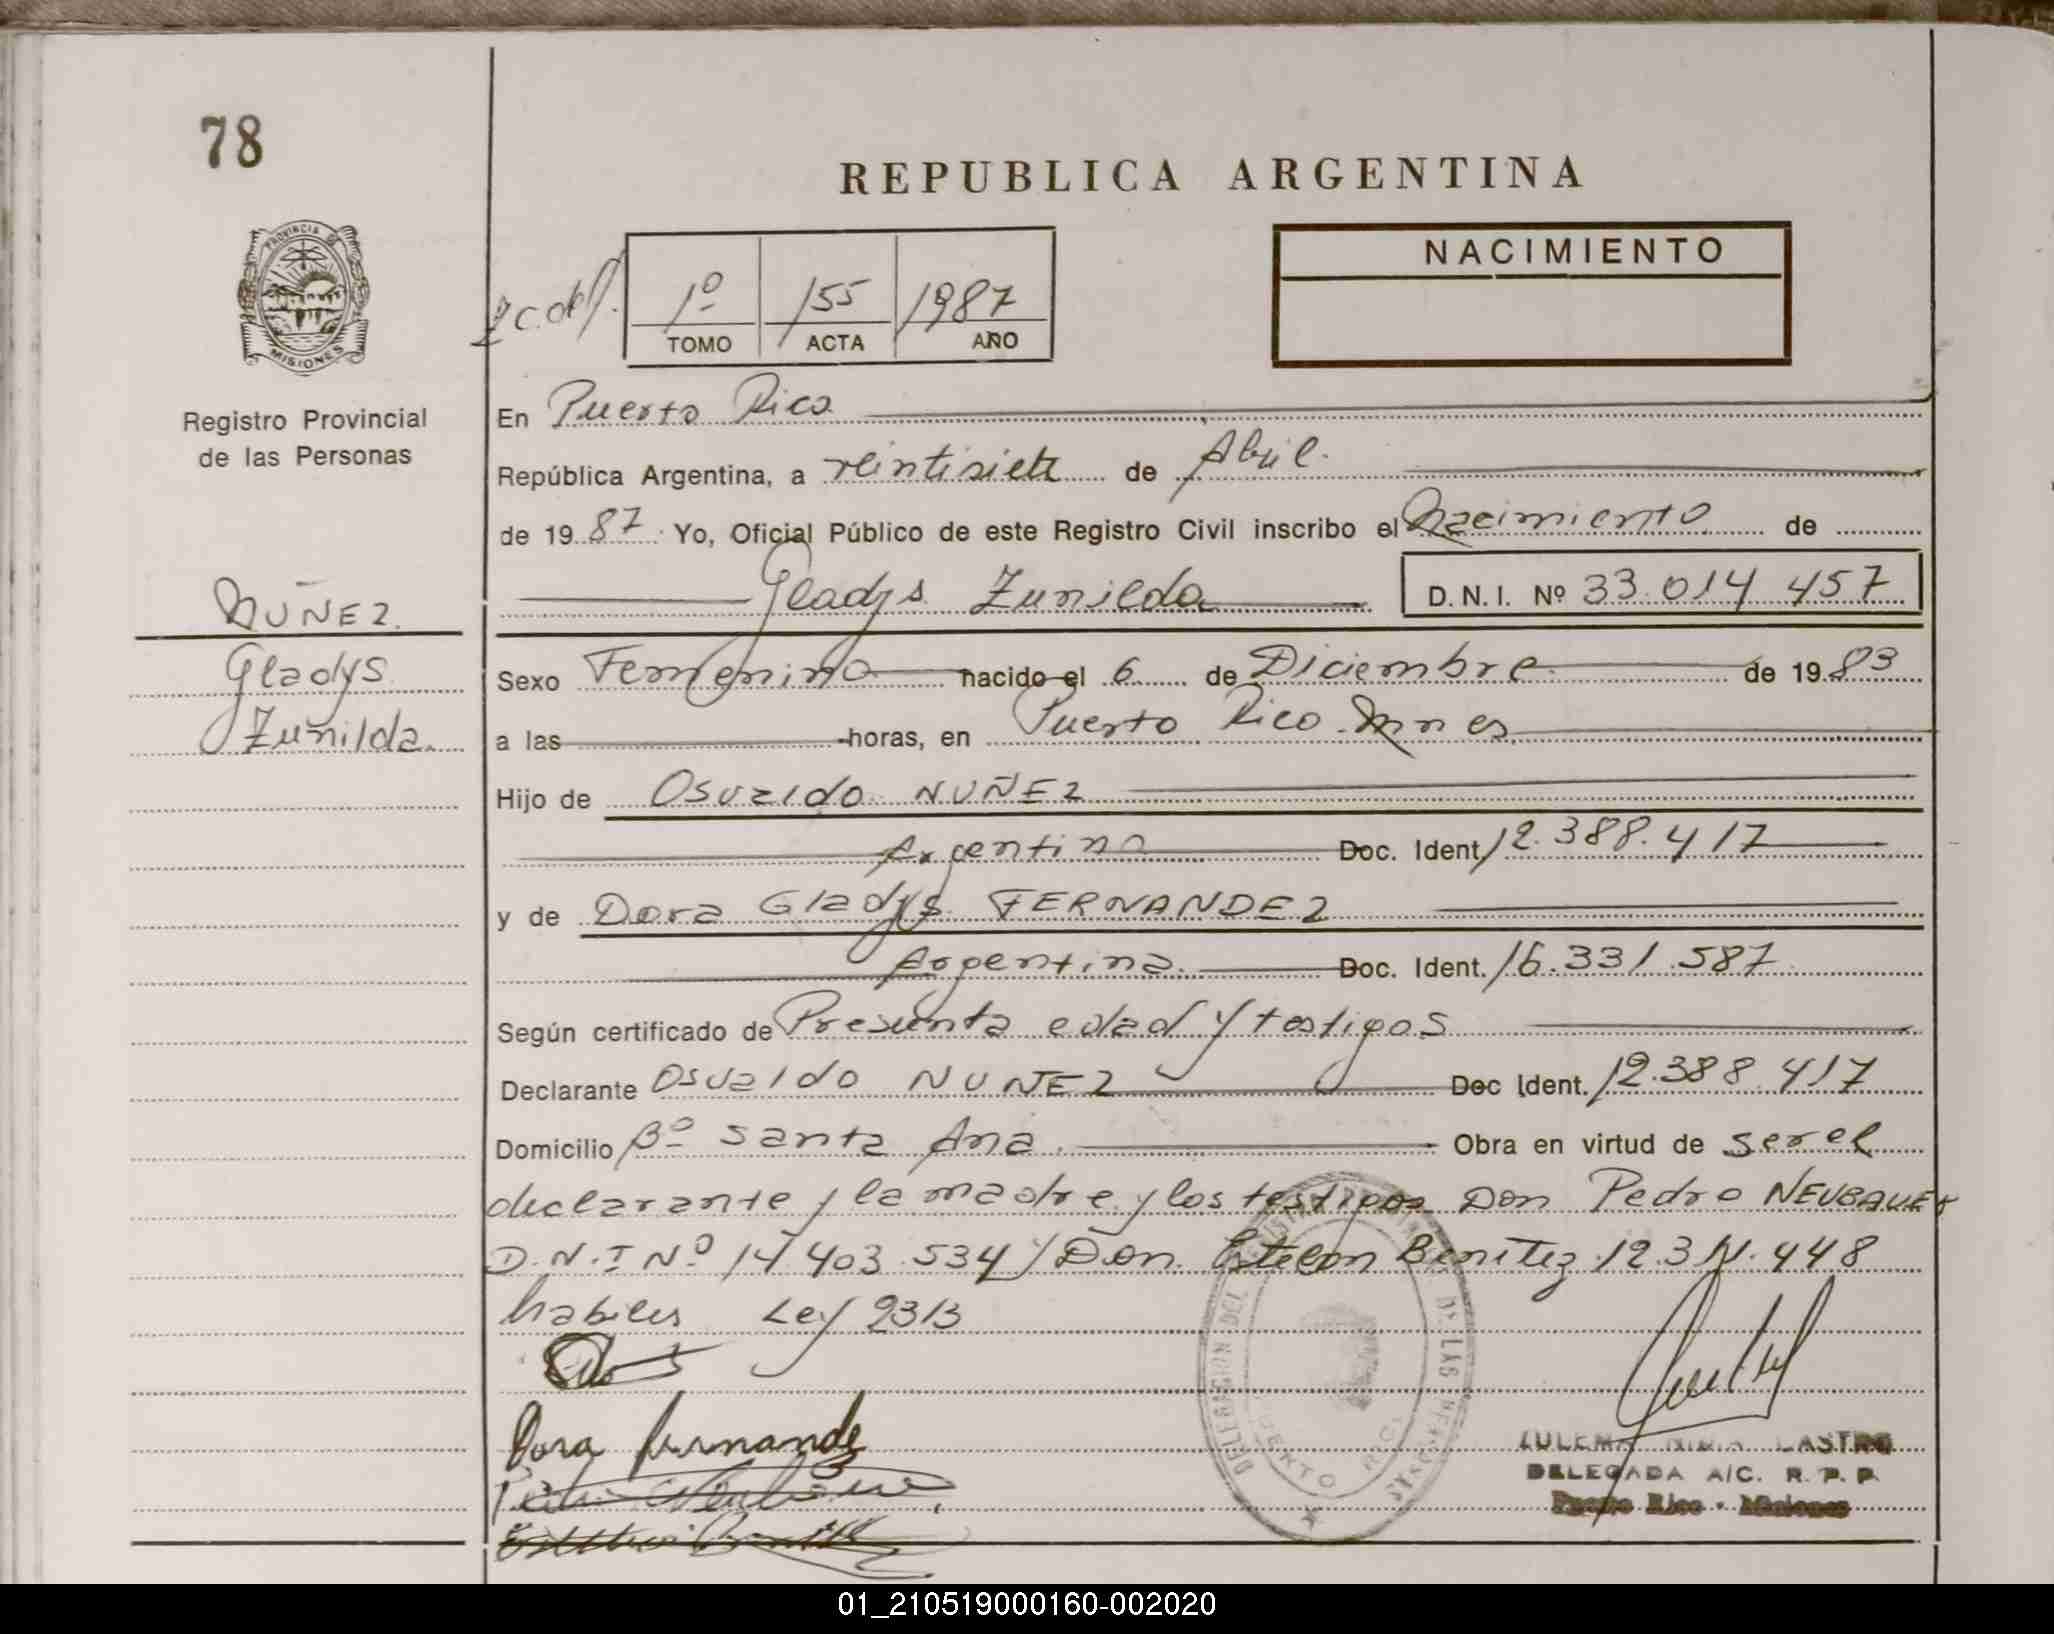 78
REPUBLICA ARGENTINA
PROVINCIA DE
MISIONES
Registro Provincial
de las Personas
1º 155 1987
TOMO ACTA AÑO
NACIMIENTO
En Puerto Rico
República Argentina, a veintisiete de Abril.
de 19 87 Yo, Oficial Público de este Registro Civil inscribo el Nacimiento de
Gladys Zunilda D.N.I. Nº 33.014 457
NUÑEZ.
Gladys
Zunilda.
Sexo Femenino nacido el 6 de Diciembre de 19 83
a las horas, en Puerto Rico Mnes
Hijo de Osvaldo NUÑEZ
Argentino Doc. Ident. 12.388.417
y de Dora Gladys FERNANDEZ
Argentina. Doc. Ident. 16.331.587
Según certificado de Presunta edad y testigos
Declarante Osvaldo NUÑEZ Doc Ident. 12.388.417
Domicilio Bº Santa Ana. Obra en virtud de ser el
declarante y la madre y los testigos Don Pedro NEUBAUER
D.N.I Nº 14 403.534 y Don Benitez
habiles Ley
Dora Fernande
DELEGACION DEL REGISTRO PROVINCIAL DE LAS PERSONAS
PUERTO RICO
CASTRO
DELEGADA A/C. R. P. P.
Puerto Rico - Misiones
01_210519000160-002020